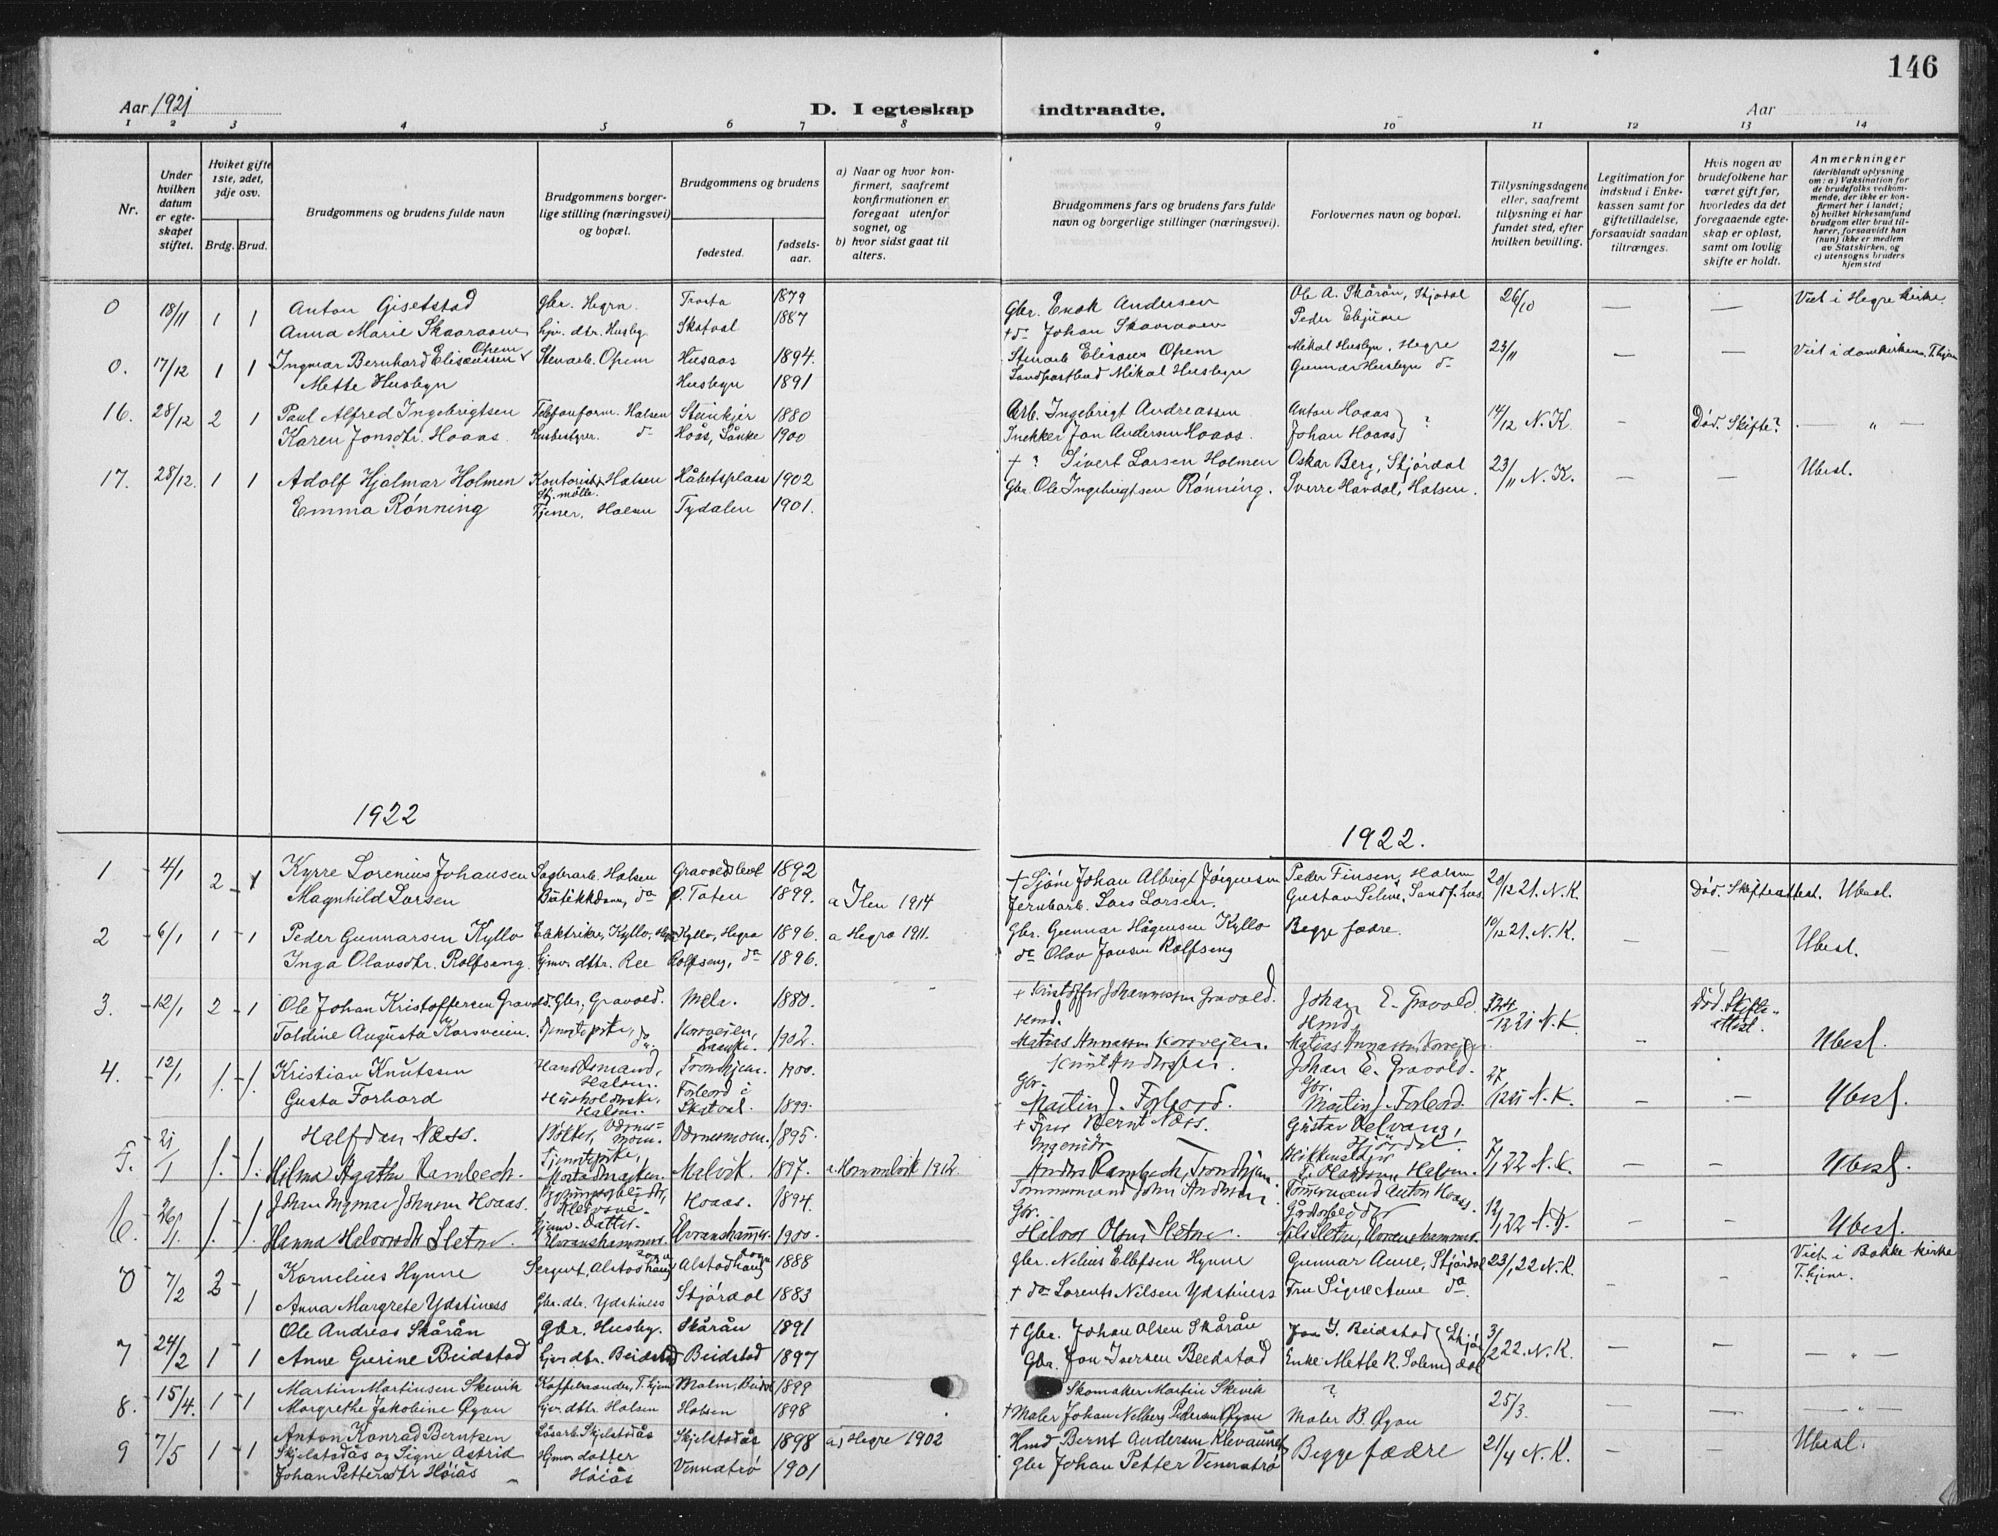 146
Aar 1921
D. I egteskap indtraadte.
Aar
1 2 3 4 5 6 7 8 9 10 11 12 13 14
Nr.
Under hvilken datum er egteskapet stiftet.
Hviket gifte 1ste, 2det, 3dje osv.
Brdg. Brud.
Brudgommens og brudens fulde navn
Brudgommens borgerlige stilling (næringsvei) og bopæl.
Brudgommens og brudens
fødested.
fødselsaar.
a) Naar og hvor konfirmert, saafremt konfirmationen er foregaat utenfor sognet, og
b) hvor sidst gaat til alters.
Brudgommens fars og brudens fars fulde navn og borgerlige stillinger (næringsvei).
Forlovernes navn og bopæl.
Tillysningsdagene eller, saafremt tillysning ei har fundet sted, efter hvilken bevilling.
Legitimation for indskud i Enkekassen samt for giftetilladelse, forsaavidt saadan tiltrænges.
Hvis nogen av brudefolkene har været gift før, hvorledes da det foregaaende egteskap er opløst, samt om lovlig skifte er holdt.
Anmerkninger (deriblandt oplysning om: a) Vaksination for de brudefolks vedkommende, der ikke er konfirmert her i landet; b) hvilket kirkesamfund brudgom eller brud tilhører, forsaavidt han (hun) ikke er medlem av Statskirken, og c) utensogns bruders hjemsted
0 18/11 1 1 Anton Gisetstad Gbr. Hegra 1879 Gbr. Enok Andersen Ole A. Skårån, Stjødal 26/10 — — Viet i Hegra kirke.
Anna Marie Skaaraaen hjv. dtr. Husby Skatval 1887 + do Johan Skaaraaen Peder
0. 17/12 1 1 Ingmar Bernhard Elisæussen Opem Stenarb. Opem Husaas 1894. Stenarb Elisæus Opem Mikal Husbyn, Hegre 23/11 — — Viet i domkirken, T.hjem
Mette Husbyn Husbyn 1891 Landpostbud Mikal Husbyn Gunnar Husbyn do
16. 28/12 2 1 Paul Alfred Ingebrigtsen Telefonform. Halsen Steinkjer 1880 Arb. Ingebrigt Andreassen Anton Hoaas ? 14/12 N.K. — Død. Skifte? — „ —
Karen Jonsdtr. Hoaas. Husbestyrer. do Hoås, Lånke 1900 Snekker Jon Andersen Hoaas. Johan Hoaas
17. 28/12. 1 1 Adolf Hjalmar Holmen Kontorist Halsen Håbetsplass 1902 + ? Sivert Larsen Holmen Oskar Berg, Stjørdal 23/11 N.K. — — Ubesl.
Stj. mølle.
Emma Rønning Tjener, Halsen Tydalen 1901. Gbr. Ole Ingebrigtsen Rønning. Sverre Havdal, Halsen.
1922 1922.
1 4/1 2 1 Kyrre Lorenius Johansen Sagbrarb. Halsen 1892 + Johan Albrigt Jørgensen Peder Finsen, Halsen 20/12 21. N.K. Død. Skifteattest. Ubesl.
Magnhild Larsen Butikkdame, do Ø. Toten 1899. a Ilen 1914 Jernbarb. Lars Larsen. Gustav Selnes,
2 6/1 1 1 Peder Gunnarsen Kyllo Elektriker, Kyllo, Hegra Kyllo, Hegra 1896. a Hegra 1911. Gbr. Gunnar Hågensen Kyllo Begge fædre. 10/12 21. N.K. — — Ubesl.
Inga Olavsdtr. Rolfseng. hjmv. dttr. Ree Rolfseng, do 1896. do Olav Jonsen Rolfseng
3. 12/1 2 1 Ole Johan Kristoffersen Gravold. Gbr. Gravold. Mela. 1880. + Kristoffer Johannessen Gravold. Hmd. Johan E. Gravold Hmd. 12 21 N.K. Død. Skifte attest.
Toldine Augusta Korsveien. Tjenestepike, do Korsveien, 1902. Matias Annassen Korsvejen. Matias Annassen Korsvejen — Ubesl.
4. 12/1 1. 1. Kristian Knutssen Handelsmand, Halsen. Trondhjem. 1900. Knut Andersen. Johan E. Gravold. 27/12 21 N.K. — — Ubesl.
Gusta Forbord Husholderske, Halsen. Forbord i Skatval. 1899. Gbr. Martin J. Forbord. Gbr. Martin J. Forbord.
5. 21/1 1. 1. Halfdan Næss. Værnesmoen. Værnesmoen. 1895. + Bernt Næss. Gustav Stjørdal 7/1 22 N.K. — — Ubesl.
Hilma Agathe Rambech. Tjenestepike, Malvik. 1897. a. Hommelvik 1912. Ingeniør Anders Rambech, Trondhjem. Halsen.
6. 26/1 1. 1. Johan Ingmar Johnsen Hoaas. Hoaas. 1894. Tømmermand John Andersen Tømmermand Anton Hoaas. 12/1 22 N.K. — — Ubesl.
Hanna Halvorsdtr Sletne. Hjem. Datter. 1900. Gbr. Halvor Olsen Sletne. Gårdarbeider Nils Sletne,
0 7/2 2 Kornelius Hynne Sergent, Alstadhaug sogn Alstadhaug sogn 1888 Gbr. Nelius Ellefsen Hynne Gunnar Aune, Stjørdal 23/1 22 N.K. — — Viet i Bakke kirke T.hjem.
1 Anna Margrete Ydstiness Gbr. dtr. Ydstiness Stjørdal 1883 + do Lorents Nilsen Ydstiness Fru Signe Aune do
7 24/2 1 1 Ole Andreas Skårån Gbr. Husby. Skårån 1891 + Gbr. Johan Olsen Skårån Jon I. Beidstad Stjørdal 3/2 22. N.K. — — — „ —
Anne Gurine Beidstad hjmvdtr. Beidstad Beidstad 1897 Gbr. Jon Iversen Beidstad Enke Mette K. Solem
8. 15/4. 1 1 Martin Martinsen Skevik T.hjem Malm, 1899 Skomaker Martin Skevik ? 25/3. — — — „ —
Margrethe Jakobine Øyan hjv. dttr. Halsen Halsen 1898 + Maler Johan Nelberg Pedersen Øyan Maler B. Øyan
9 7/5 1 1 Anton Konrad Berntsen Løsarb. Skjelstadås Skjelstadås 1898 a) Hegre 1902 Hmd Bernt Andersen Klevaunet Begge fædre 21/4 N.K. — — Ubesl.
Skjelstadås og Signe Astrid Hjmv datter Vennatrø 1901 Gbr Johan Petter Vennatrø
Johan Pettersdtr Høiås Høiås